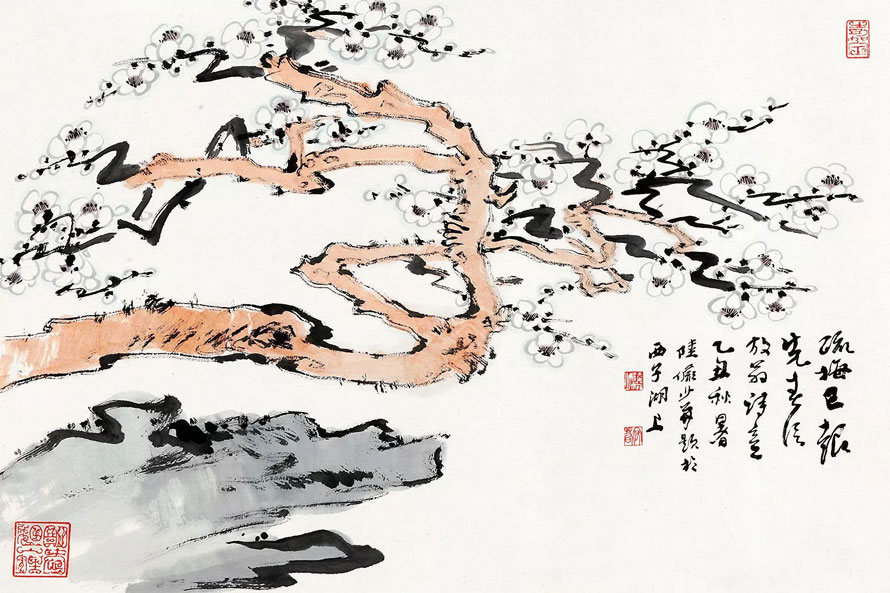 疏梅已報
先春信
放翁詩意
乙丑秋暑
陸儼少并題於
西子湖上